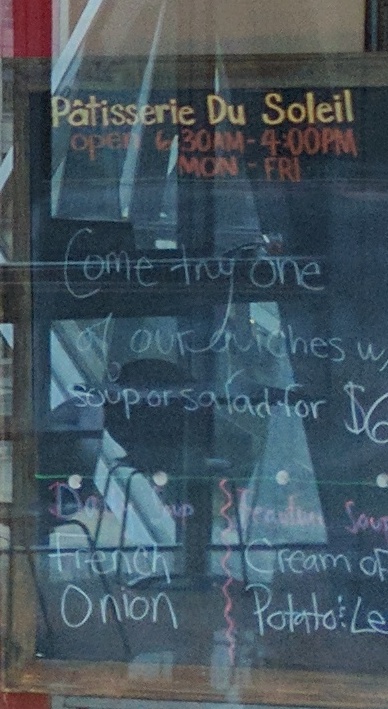 Pâtisserie Du Soleil
open 6:30AM - 4:00PM
MON - FRI
Come try one
of our quiches w/
soup or salad for $6
Daily Soup
French
Onion
Feature Soup
Cream of
Potato & Le